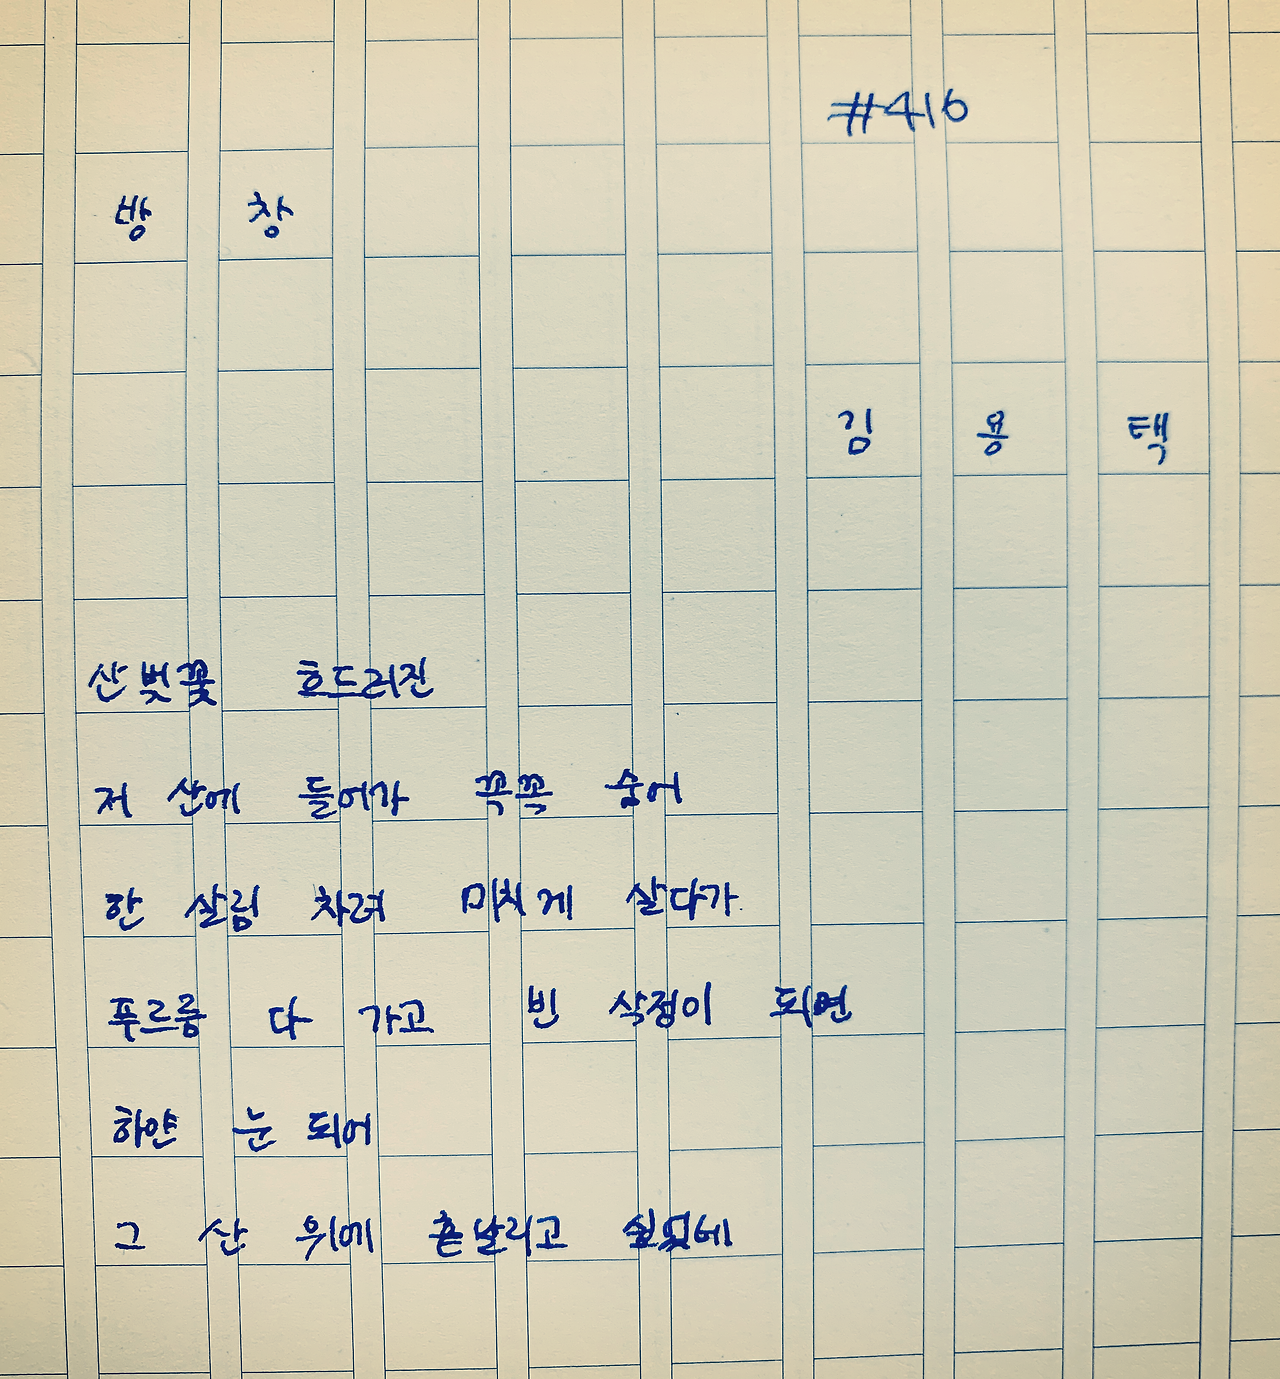 #416
방 창
김 용 택
산벚꽃 흐드러진
저 산에 들어가 꼭꼭 숨어
한 살림 차려 미치게 살다가
푸르름 다 가고 빈 삭정이 되면
하얀 눈 되어
그 산 위에 흩날리고